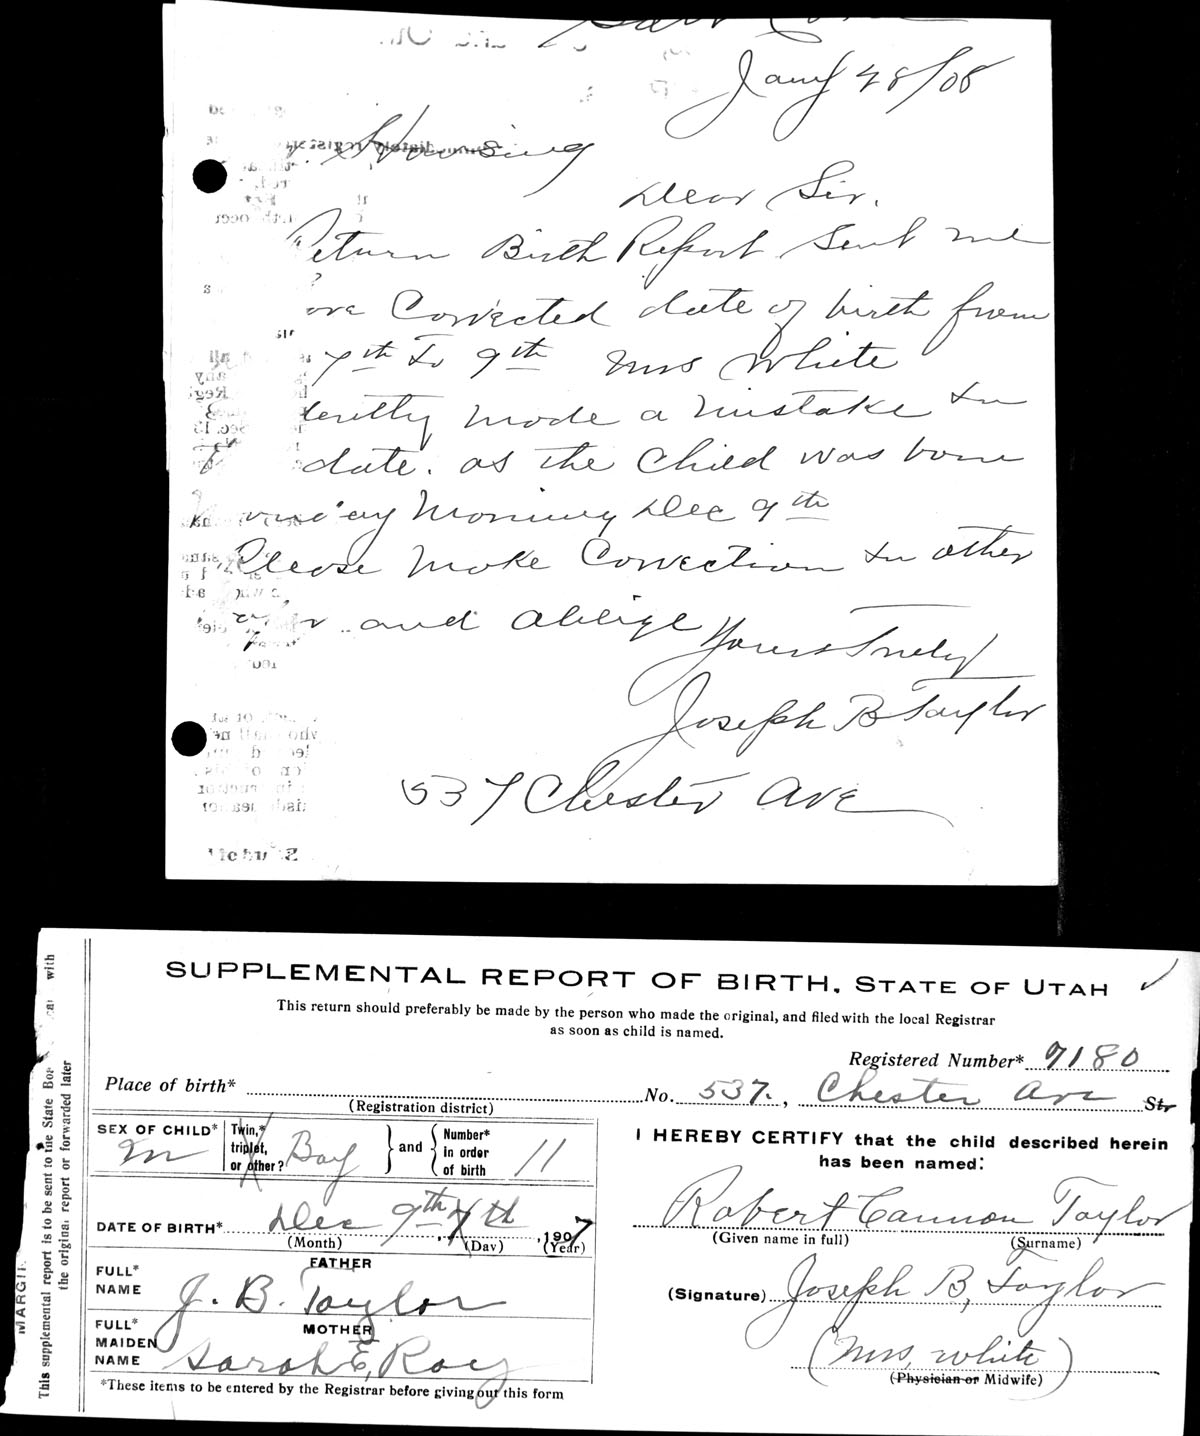 Jany 28/08
Dear Sir.
Return Birth Report Sent me
Corrected date of birth from
7th to 9th Mrs White
made a mistake in
date. as the child was born
Morning Dec 9th
Please Make Correction in other
and oblige
Yours Truly
Joseph B Taylor
537 Chester Ave
SUPPLEMENTAL REPORT OF BIRTH, STATE OF UTAH
This return should preferably be made by the person who made the original, and filed with the local Registrar
as soon as child is named.
Registered Number* 7180
Place of birth* No. 537., Chester Ave Str
(Registration district)
SEX OF CHILD* M
Twin,* triplet, or other? Boy and Number* in order of birth 11
DATE OF BIRTH* Dec 9th 7th, 1907
(Month) (Day) (Year)
FATHER
FULL* NAME J. B. Taylor
MOTHER
FULL* MAIDEN NAME Sarah E, Roy
*These items to be entered by the Registrar before giving out this form
I HEREBY CERTIFY that the child described herein
has been named:
Robert Cannon Taylor
(Given name in full) (Surname)
(Signature) Joseph B, Taylor
(Mrs, White)
(Physician or Midwife)
This supplemental report is to be sent to the State with
the original report or forwarded later